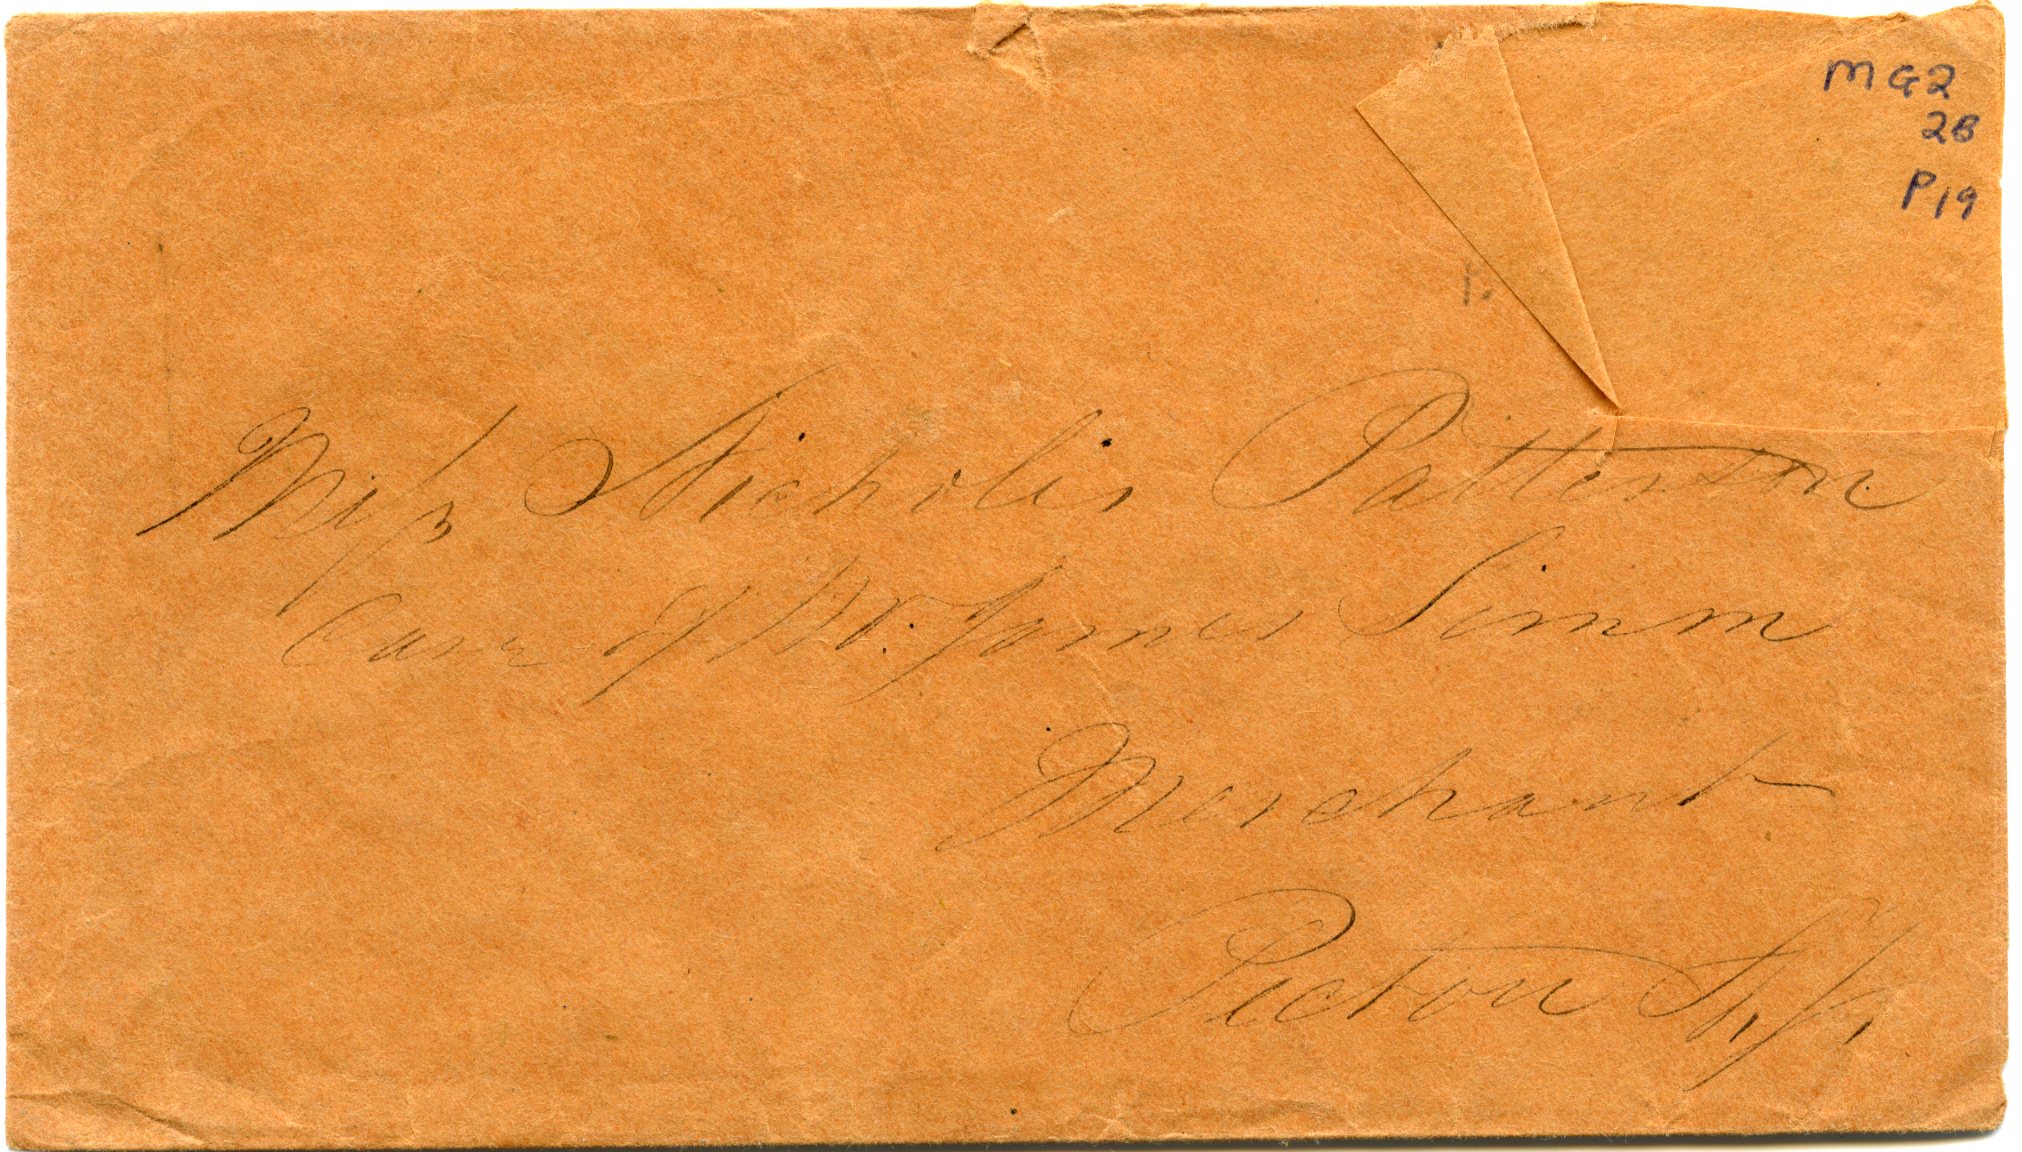 MG2
2B
P19
Miss Nicholis Patterson
Care of Mr. James Simm
Merchant
Pictou N.S.